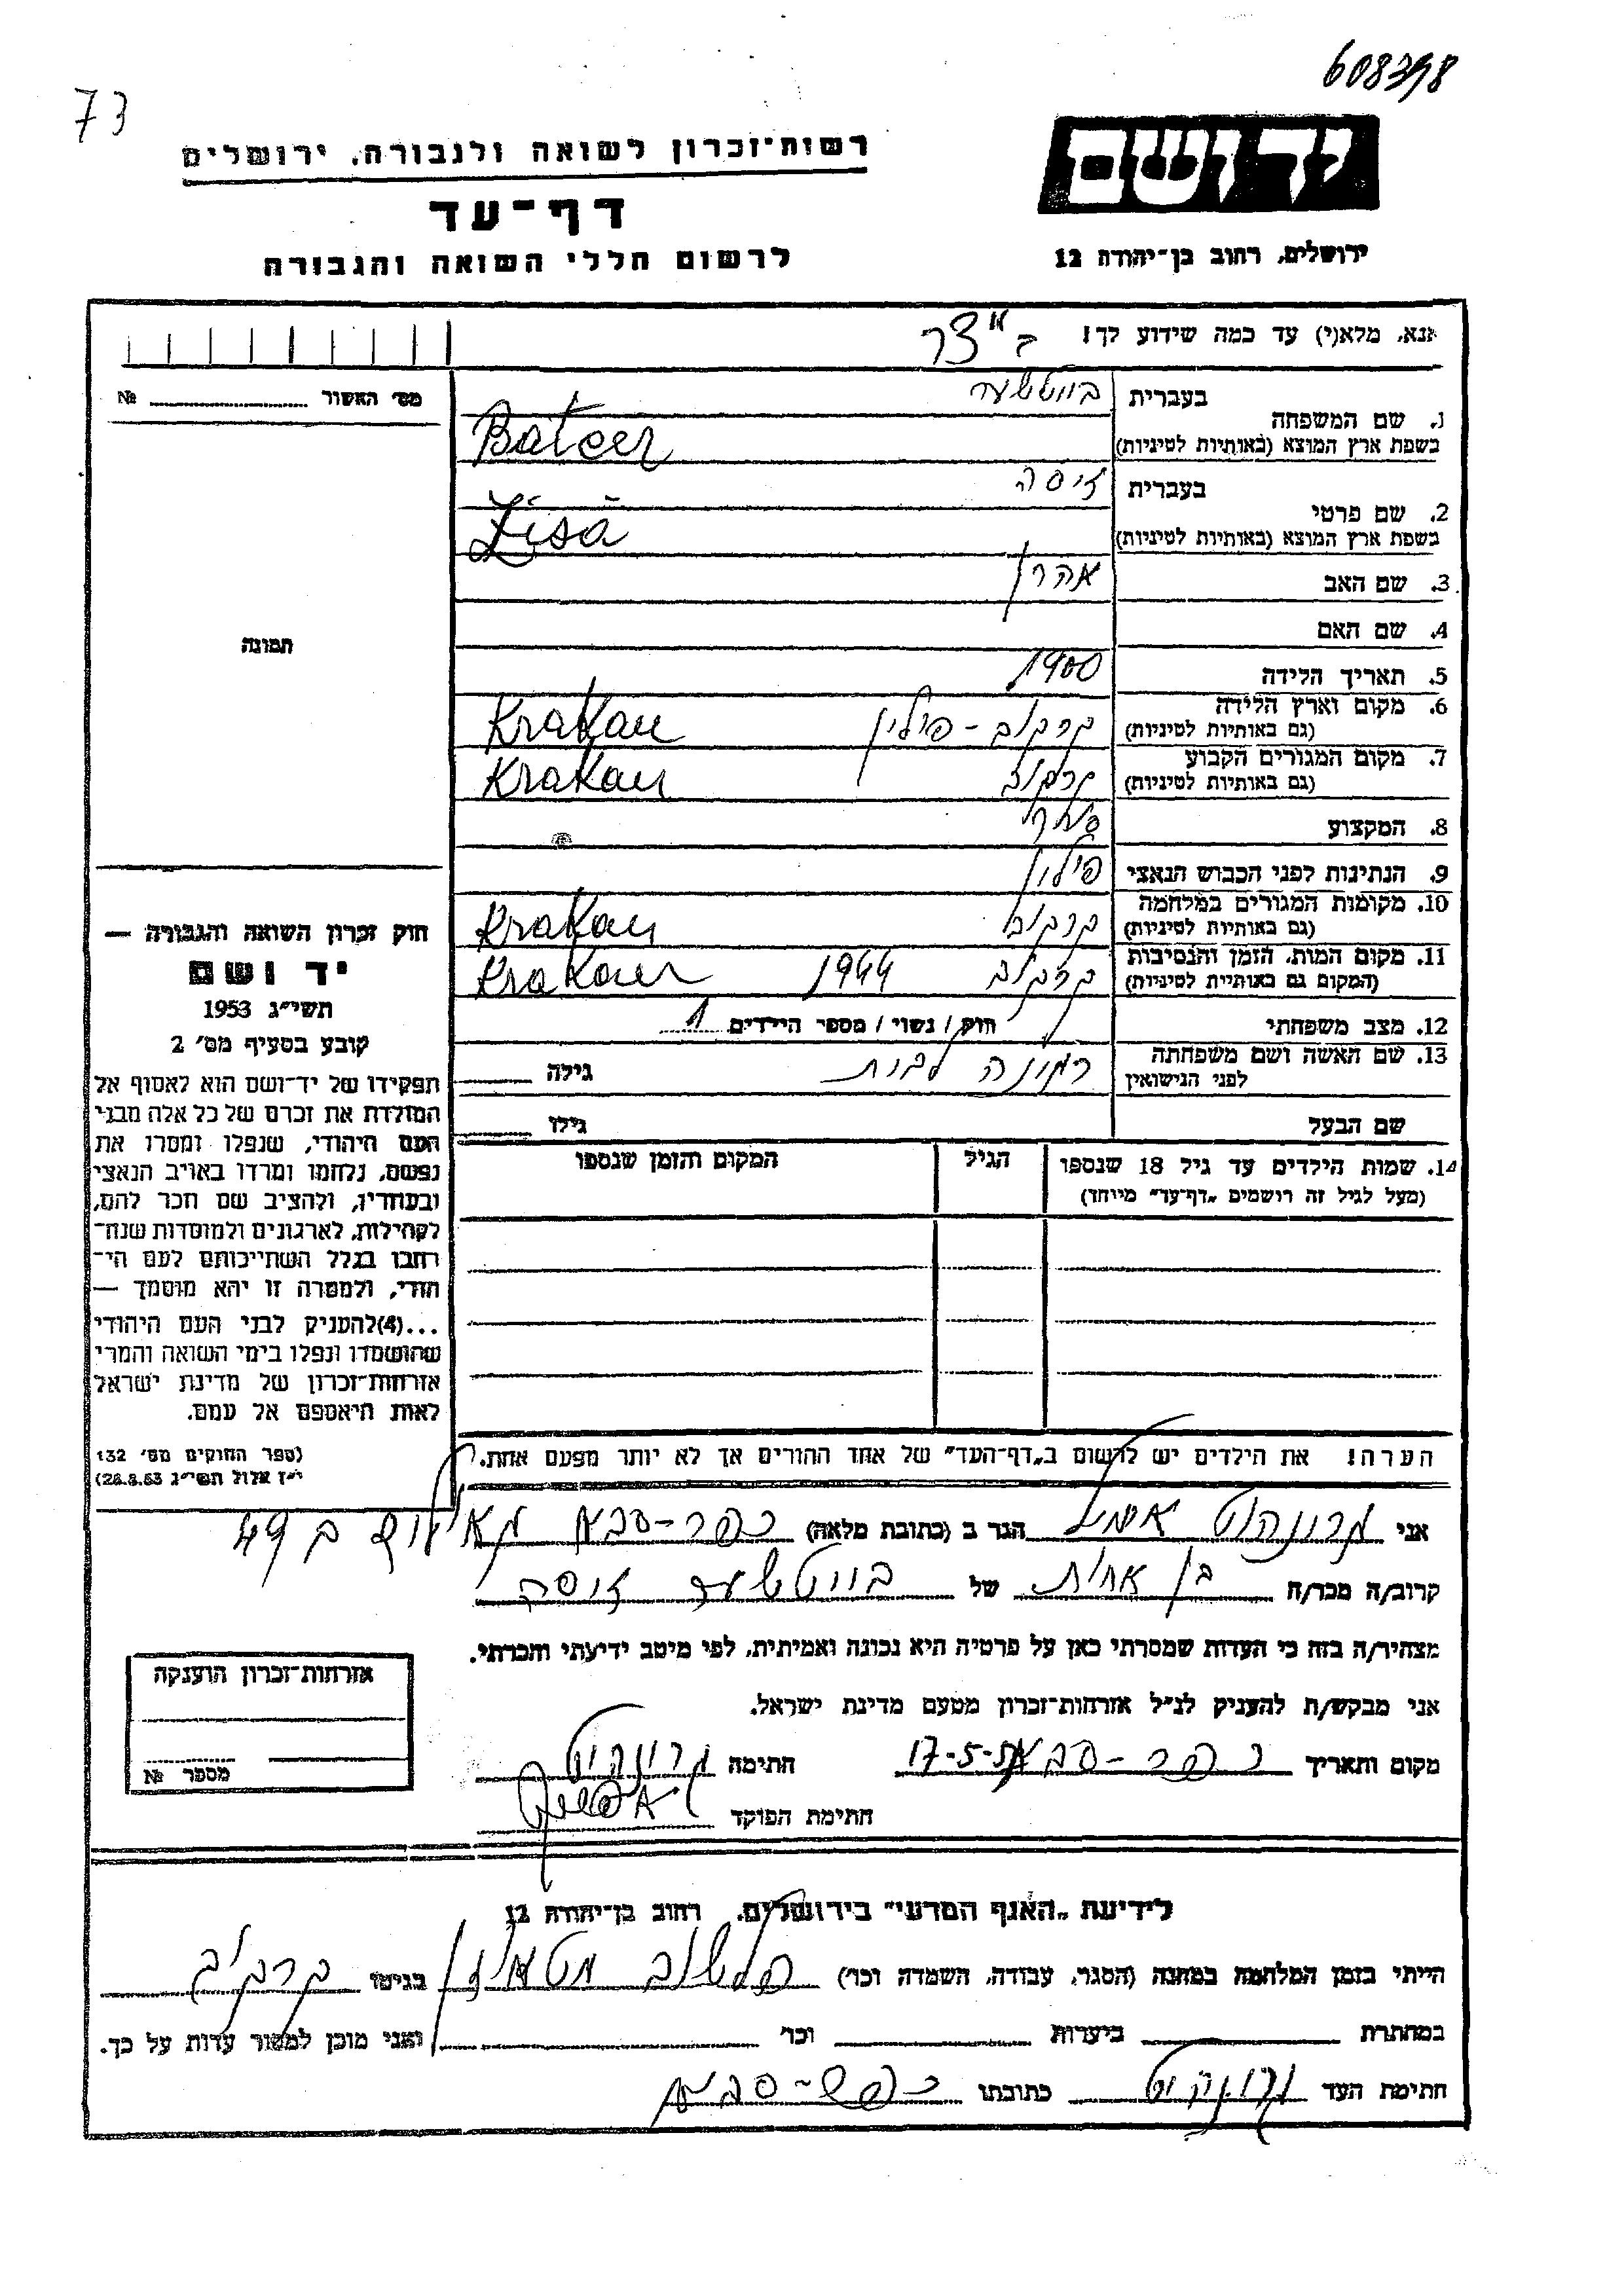 608398
73
יד ושם
רשות־זכרון לשואה ולגבורה, ירושלים
דף־עד
לרשום חללי השואה והגבורה
ירושלים, רחוב בן־יהודה 12
אנא, מלא(י) עד כמה שידוע לך!
מס׳ האשור № 
1. שם המשפחה
בעברית
בשפת ארץ המוצא (באותיות לטיניות)
Batcer
2. שם פרטי
בעברית זיסה
בשפת ארץ המוצא (באותיות לטיניות) Zisa
3. שם האב אהרן
4. שם האם
5. תאריך הלידה 1900
6. מקום וארץ הלידה (גם באותיות לטיניות) קרקוב - פולין Krakau
7. מקום המגורים הקבוע (גם באותיות לטיניות) קרקוב Krakau
8. המקצוע
9. הנתינות לפני הכבוש הנאצי פולין
10. מקומות המגורים במלחמה (גם באותיות לטיניות) קרקוב Krakau
11. מקום המות, הזמן והנסיבות (המקום גם באותיות לטיניות) קרקוב 1944 Krakau
12. מצב משפחתי רווק / נשוי / מספר הילדים 1
13. שם האשה ושם משפחתה לפני הנישואין גילה
שם הבעל גילו
14. שמות הילדים עד גיל 18 שנספו
(מעל לגיל זה רושמים „דף־עד״ מיוחד)
הגיל
המקום והזמן שנספו
הערה! את הילדים יש לרשום ב„דף־העד״ של אחד ההורים אך לא יותר מפעם אחת.
תמונה
חוק זכרון השואה והגבורה —
יד ושם
תשי״ג 1953
קובע בסעיף מס׳ 2
תפקידו של יד־ושם הוא לאסוף אל
המולדת את זכרם של כל אלה מבני
העם היהודי, שנפלו ומסרו את
נפשם, נלחמו ומרדו באויב הנאצי
ובעוזריו, ולהציב שם וזכר להם,
לקהילות, לארגונים ולמוסדות שנח־
רבו בגלל השתייכותם לעם הי־
הודי, ולמטרה זו יהא מוסמך —
...(4) להעניק לבני העם היהודי
שהושמדו ונפלו בימי השואה והמרי
אזרחות־זכרון של מדינת ישראל
לאות היאספם אל עמם.
(ספר החוקים מס׳ 132
י״ז אלול תשי״ג 28.8.53)
אני הגר ב (כתובת מלאה) כפר-סבא
קרוב/ה מכר/ה בן אחות של זיסה
מצהיר/ה בזה כי העדות שמסרתי כאן על פרטיה היא נכונה ואמיתית, לפי מיטב ידיעתי והכרתי.
אני מבקש/ת להעניק לנ״ל אזרחות־זכרון מטעם מדינת ישראל.
מקום ותאריך כפר-סבא חתימה
חתימת הפוקד
אזרחות־זכרון הוענקה
מספר №
לידיעת „האגף המדעי״ בירושלים, רחוב בן־יהודה 12
הייתי בזמן המלחמה במחנה (הסגר, עבודה, השמדה וכו׳) בגיטו קרקוב
במחתרת ביערות וכו׳ ואני מוכן למסור עדות על כך.
חתימת העד כתובתו כפר-סבא